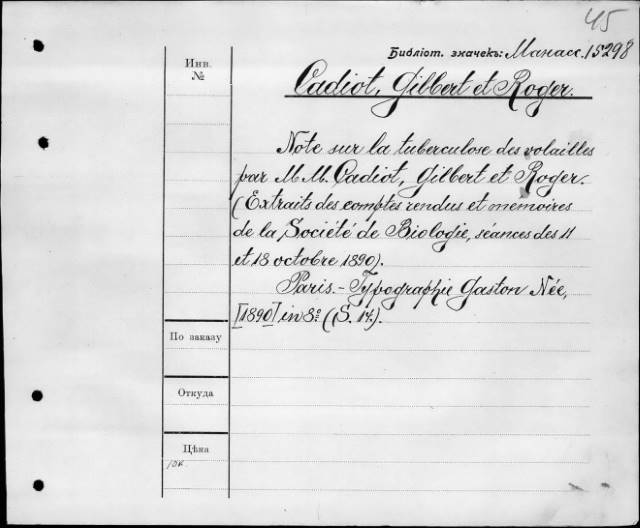 45
Библіот. значекъ: Манасс. 15298
Инв.
№
Cadiot, Gilbert et Roger.
Note sur la tuberculose des volailles
par M.M. Cadiot, Gilbert et Roger.
(Extraits des comptes rendus et mémoires
de la Société de Biologie, séances des 11
et 18 octobre 1890).
Paris. - Typographie Gaston Née,
[1890] in 8º (S. 14.).
По заказу
Откуда
Цѣна
10к